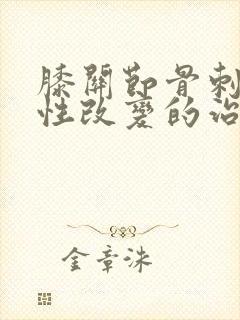 膝關節骨刺
性改變的治
金章洙